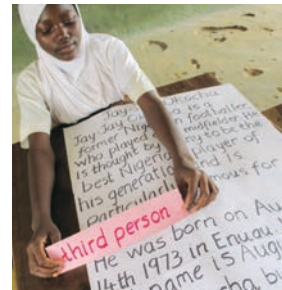 Jay Okocha
Jay Jay is a
former footballer
who played midfielder. He
is thought by to be the
best player of
his generation and is
particularly for
third person
He was born on
14th 1973 in Enugu.
name is